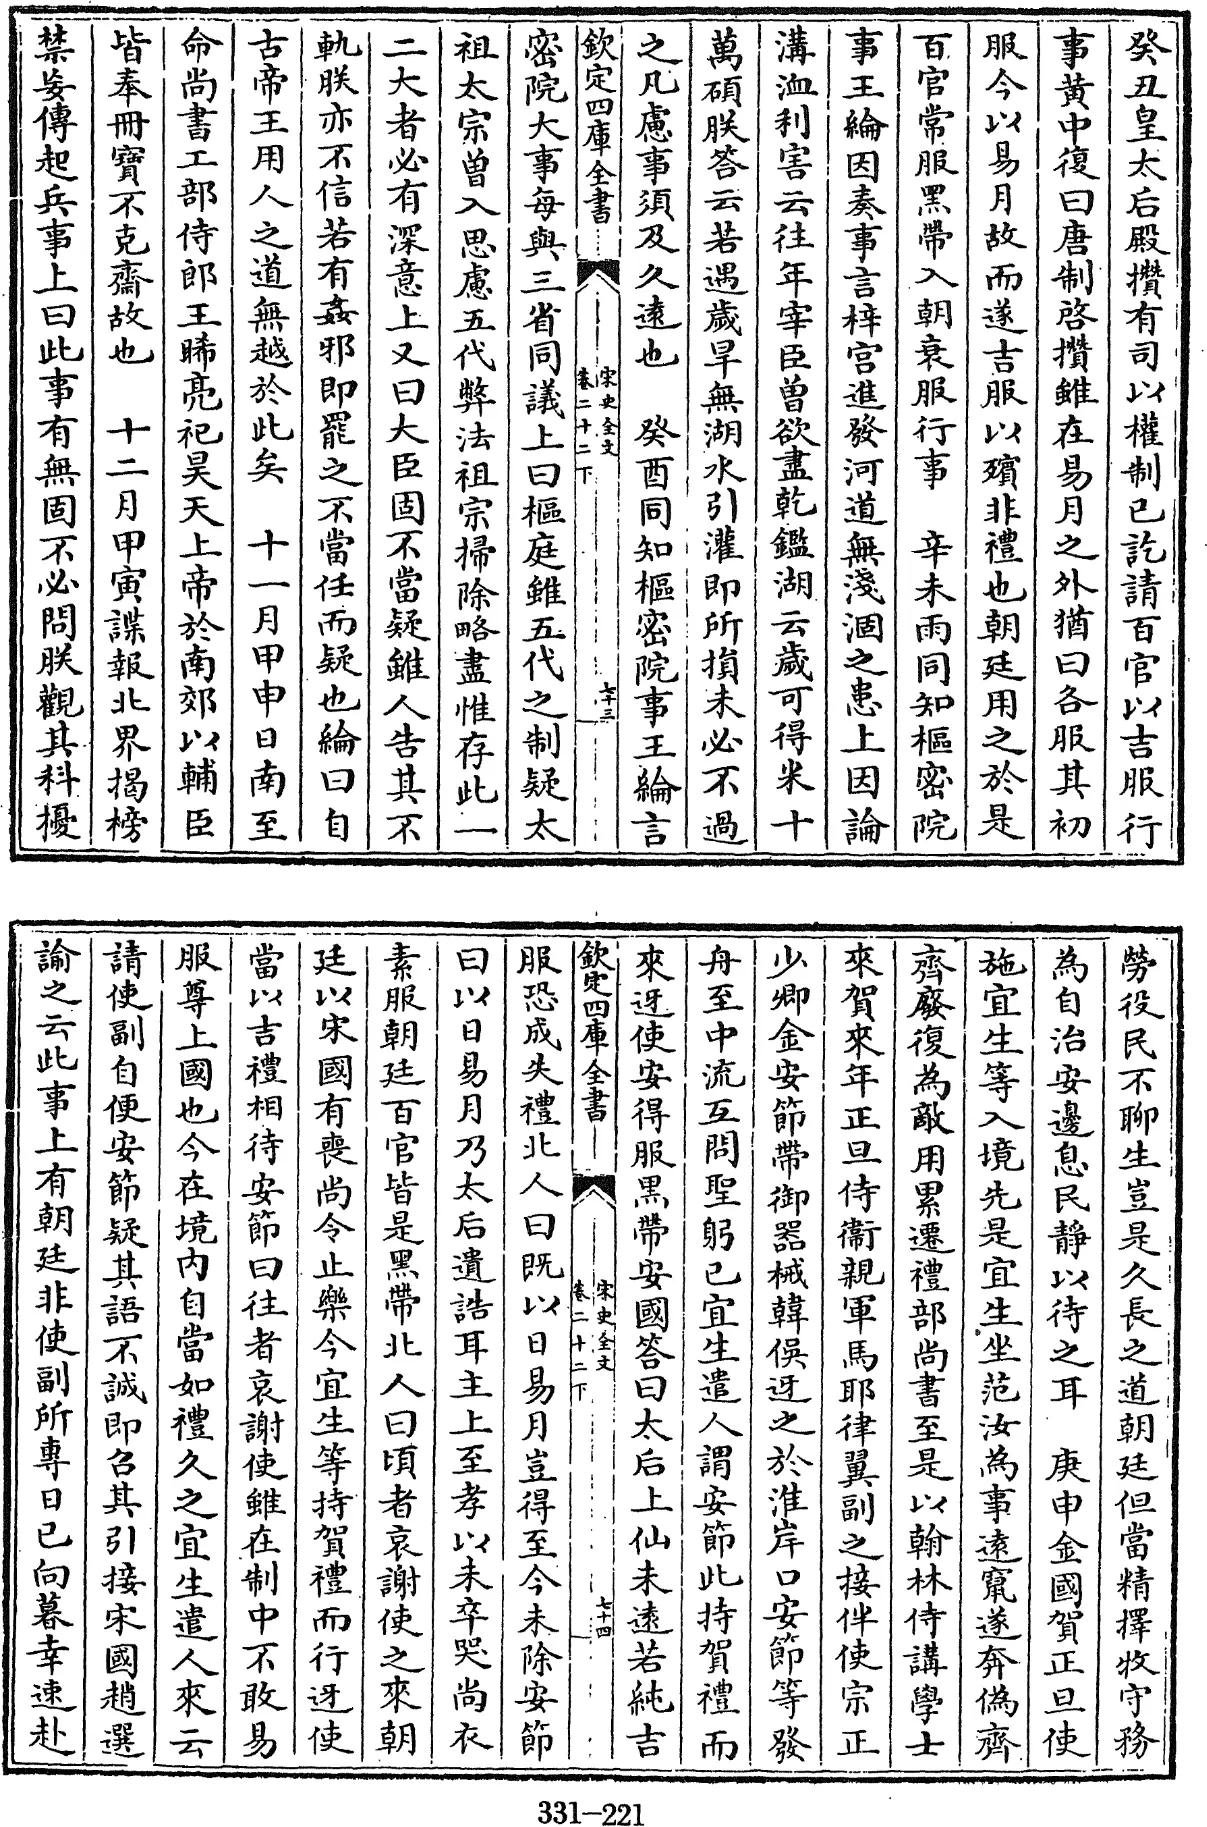 癸丑皇太后殿攢有司以權制已訖請百官以吉服行
事黄中復曰唐制啓攢雖在易月之外猶曰各服其初
服今以易月故而遂吉服以殯非禮也朝廷用之於是
百官常服黑帶入朝衰服行事　辛未雨同知樞密院
事王綸因奏事言梓宫進發河道無淺涸之患上因論
溝洫利害云往年宰臣曾欲盡乾鑑湖云歲可得米十
萬碩朕答云若遇歲旱無湖水引灌即所損未必不過
之凡慮事須及久遠也　癸酉同知樞密院事王綸言
欽定四庫全書
宋史全文
卷二十二下
七十三
密院大事每與三省同議上曰樞庭雖五代之制疑太
祖太宗曾入思慮五代弊法祖宗掃除略盡惟存此一
二大者必有深意上又曰大臣固不當疑雖人告其不
軌朕亦不信若有姦邪即罷之不當任而疑也綸曰自
古帝王用人之道無越於此矣　十一月甲申日南至
命尚書工部侍郎王晞亮祀昊天上帝於南郊以輔臣
皆奉冊寶不克齋故也　十二月甲寅諜報北界揭榜
禁妄傳起兵事上曰此事有無固不必問朕觀其科擾
勞役民不聊生豈是久長之道朝廷但當精擇牧守務
為自治安邊息民靜以待之耳　庚申金國賀正旦使
施宜生等入境先是宜生坐范汝為事遠竄遂奔偽齊
齊廢復為敵用累遷禮部尚書至是以翰林侍講學士
來賀來年正旦侍衞親軍馬耶律翼副之接伴使宗正
少卿金安節帶御器械韓俁迓之於淮岸口安節等發
舟至中流互問聖躬已宜生遣人謂安節此持賀禮而
來迓使安得服黑帶安國答曰太后上仙未遠若純吉
欽定四庫全書
宋史全文
卷二十二下
七十四
服恐成失禮北人曰既以日易月豈得至今未除安節
曰以日易月乃太后遺誥耳主上至孝以未卒哭尚衣
素服朝廷百官皆是黑帶北人曰頃者哀謝使之來朝
廷以宋國有喪尚令止樂今宜生等持賀禮而行迓使
當以吉禮相待安節曰往者哀謝使雖在制中不敢易
服尊上國也今在境内自當如禮久之宜生遣人來云
請使副自便安節疑其語不誠即召其引接宋國趙選
諭之云此事上有朝廷非使副所專日已向暮幸速赴
331-221